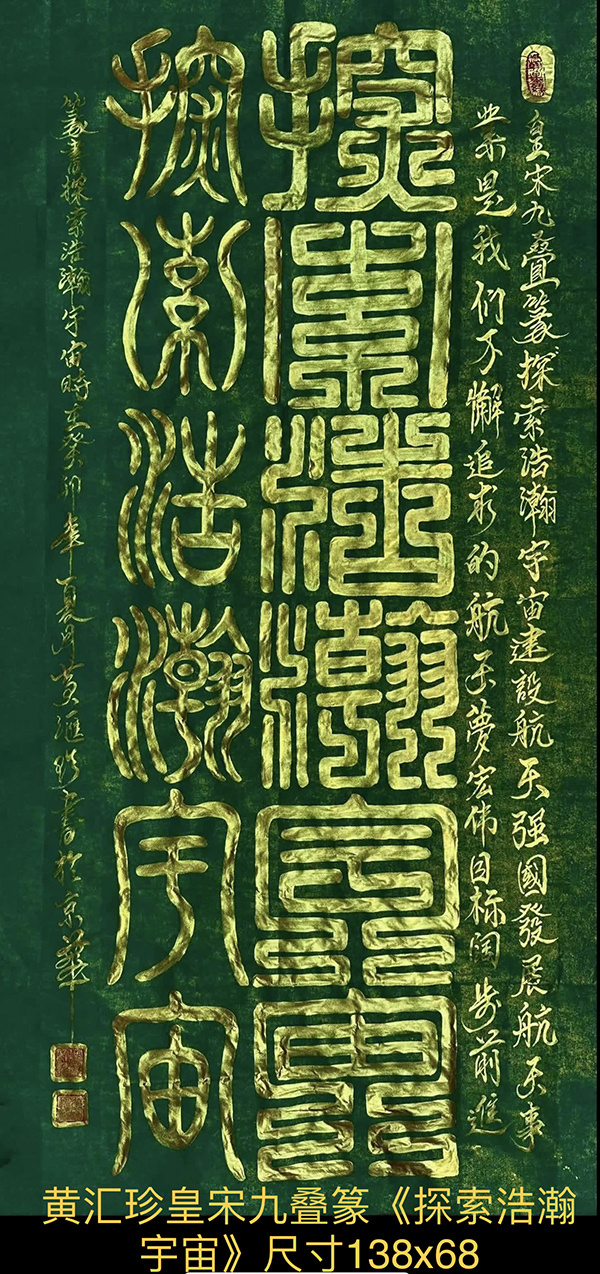 皇宋九疊篆探索浩瀚宇宙建設航天强國發展航天事
業是我們不懈追求的航天夢宏伟目标阔步前進
探索浩瀚宇宙
探索浩瀚宇宙
篆書探索浩瀚宇宙時在癸卯年夏月黄滙珍書於京華
黄汇珍皇宋九叠篆《探索浩瀚
宇宙》尺寸138x68